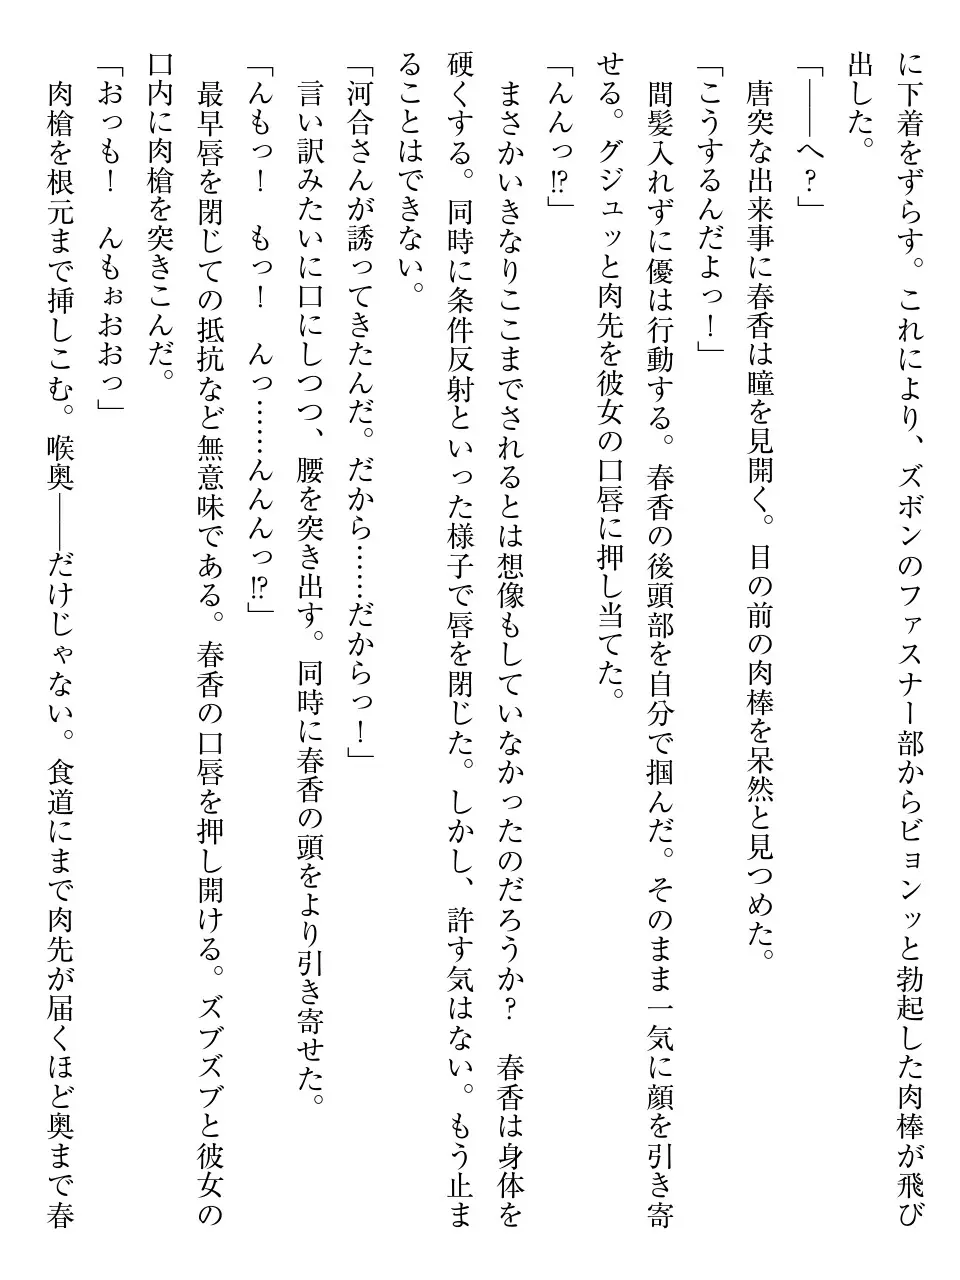 に下着をずらす。これにより、ズボンのファスナー部からビョンッと勃起した肉棒が飛び
出した。
「――へ？」
唐突な出来事に春香は瞳を見開く。目の前の肉棒を呆然と見つめた。
「こうするんだよっ！」
間髪入れずに優は行動する。春香の後頭部を自分で掴んだ。そのまま一気に顔を引き寄
せる。グジュッと肉先を彼女の口唇に押し当てた。
「んんっ!?」
まさかいきなりここまでされるとは想像もしていなかったのだろうか？　春香は身体を
硬くする。同時に条件反射といった様子で唇を閉じた。しかし、許す気はない。もう止ま
ることはできない。
「河合さんが誘ってきたんだ。だから……だからっ！」
言い訳みたいに口にしつつ、腰を突き出す。同時に春香の頭をより引き寄せた。
「んもっ！　もっ！　んっ……んんんっ!?」
最早唇を閉じての抵抗など無意味である。春香の口唇を押し開ける。ズブズブと彼女の
口内に肉槍を突きこんだ。
「おっも！　んもぉおおっ」
肉槍を根元まで挿しこむ。喉奥――だけじゃない。食道にまで肉先が届くほど奥まで春